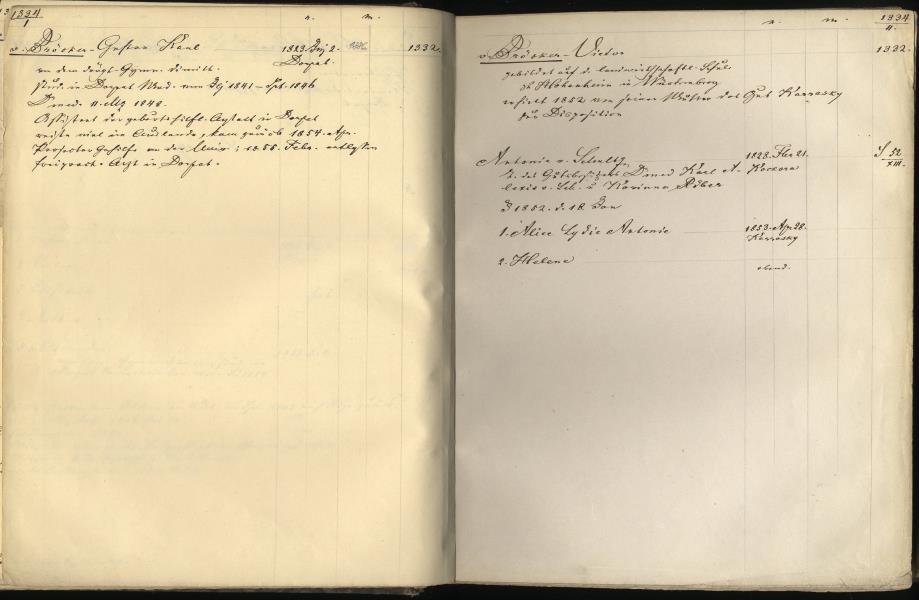 1334
1
n. m.
v. Bröcker - Gustav Karl 1823 Julj 2. 1332.
Dorpat.
von dem dörpt. Gymn. dimitt.
stud. in Dorpat Med. von 1841 - Spt. 1846
D med. 11. Mz 1848.
Assistent der geburtshilfl. Anstalt in Dorpat
reiste viel im Auslande, kam zurück 1854. Apr.
Prosector Gehilfe an der Univ: 1855. Febr. entlassen
freipract. Arzt in Dorpat.
n. m. 1334
11.
v. Bröcker - Victor 1332.
gebildet auf d. landwirthschaftl. Schule
zu Hohenheim in Würtemberg
erhielt 1852 von seiner Mutter das Gut Karrasky
zur Disposition
Antonie v. Schultz 1828. Febr 21. S. 52.
T. des Gutsbesitzers D med Karl A- Kockora XIII.
lexis v. Sch. u Korinna Röber
1852. d. 12 Jan
1. Alice Lydie Antonie 1853. Apr. 28.
Karrasky
2. Helene
ebend.